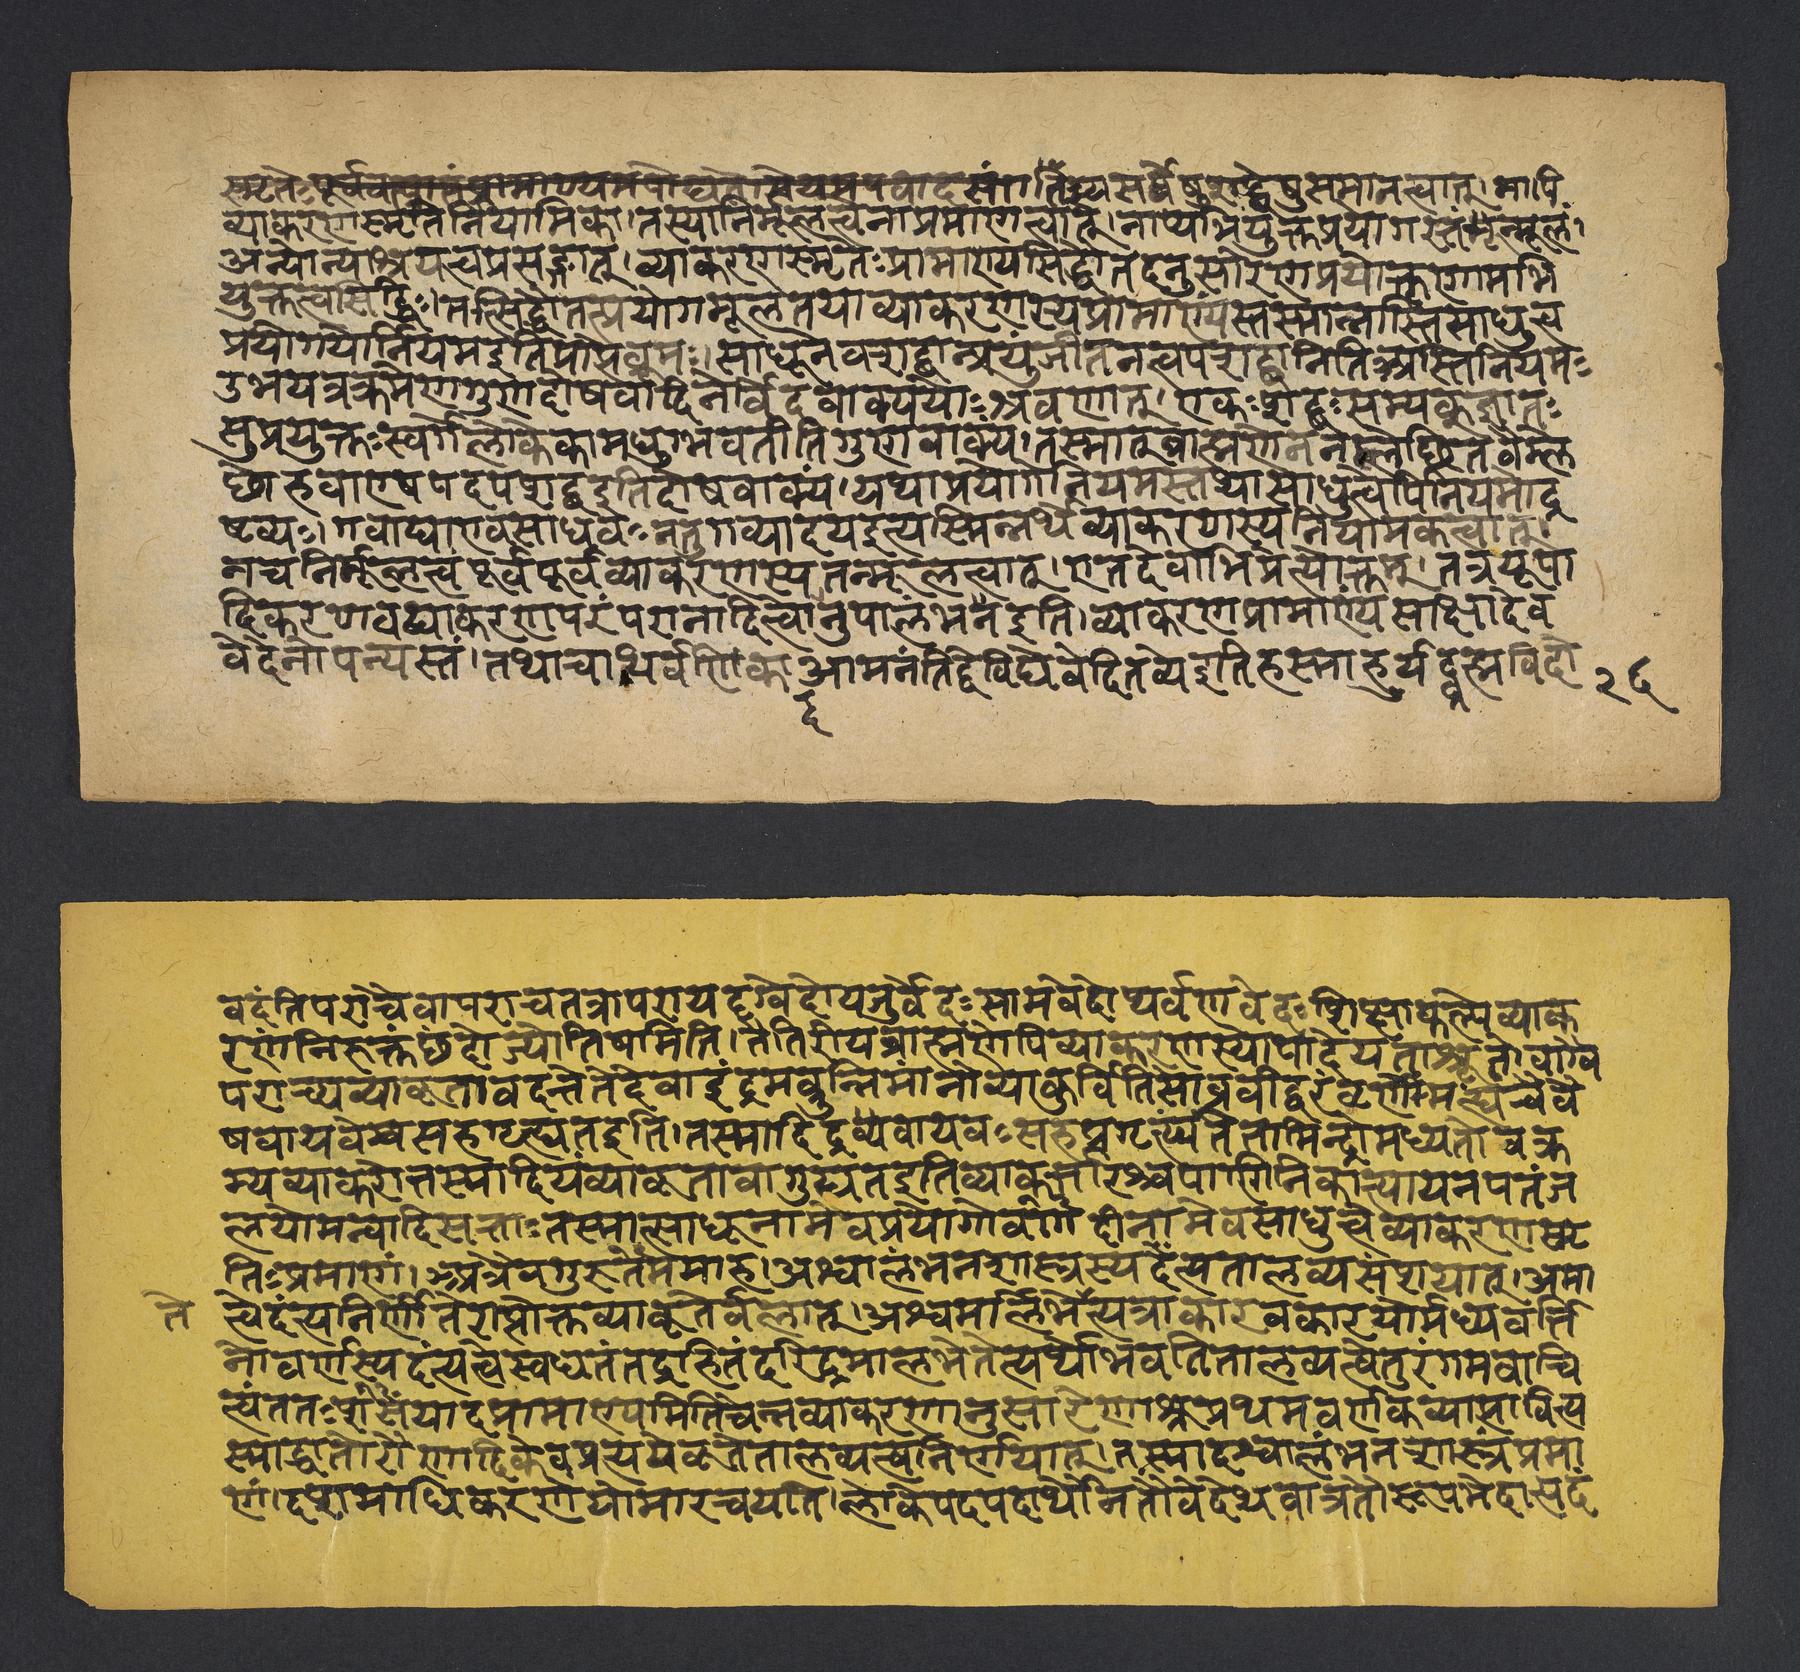 व्याकरणस्मृतिर्नियामिका। तस्यानिर्मूलत्वेनाप्रमाणत्वात्। नाप्यभियुक्तप्रयोगस्तन्मूलं।
अन्योन्याश्रयत्वप्रसङ्गात्। व्याकरणस्मृतेः प्रामाण्यसिद्धौ तदनुसारेण प्रयोक्तृणामभि
युक्तत्वसिद्धिः। तत्सिद्धौ तत्प्रयोगमूलतया व्याकरणस्य प्रामाण्यं तस्मान्नास्ति साधुत्व
प्रयोगयोर्नियम इति प्राप्ते ब्रूमः। साधूनेव शब्दान्प्रयुंजीत नत्वपशब्दानिति अस्ति नियमः
उभयत्र क्रमेण गुणदोषवादिनोर्वेदवाक्ययोः श्रवणात्। एकः शब्दः सम्यक् ज्ञातः
सुप्रयुक्तः स्वर्गे लोके कामधुग्भवतीति गुणवाक्यं। तस्मात् ब्राह्मणेन न म्लेच्छितवै म्ले
च्छो ह वा एष यदपशब्द इति दोषवाक्यं। यथा प्रयोगनियमस्तथा साधुत्वेपि नियमो द्र
ष्टव्यः। गवाद्या एव साधवः नतु गाव्यादय इत्यस्मिन्नर्थे व्याकरणस्य नियामकत्वात्।
नच निर्मूलत्वं पूर्वपूर्वव्याकरणस्य तन्मूलत्वात्। एतदेवाभिप्रेत्योक्तम्। तत्र यूपा
दिकरणवद्व्याकरणपरंपरानादित्वानुपालंभन इति। व्याकरणप्रामाण्यं साक्षादेव
वेदेनोपन्यस्तं। तथाचाथर्वणिका आमनंति द्वे विद्ये वेदितव्ये इति ह स्मा ह यद्ब्रह्मविदो २६
वदंति परा चैवापरा च तत्रापरा यदृग्वेदो यजुर्वेदः सामवेदोथर्वणवेदः शिक्षा कल्पो व्याक
रणं निरुक्तं छंदो ज्योतिषमिति। तैतिरीयब्राह्मणेपि व्याकरणस्योपादेयताश्रूते वाग्वै
पराच्यव्याकृतावदत्ते देवा इंद्रमब्रुवन्निमां नो व्याकुर्विति सोब्रवीद्वरं वृणै मह्यं चैवै
ष वायवे च सह गृह्यत इति। तस्मादैंद्रवायवः सह प्रगृह्यते तामिन्द्रो मध्यतो वक्र
म्य व्याकरोत्तस्मादियं व्याकृता वागुद्यत इति व्याकर्तारश्च पाणिनिकात्यायनपतंज
लयो मन्वादिसमाः तस्मात्साधूनामेव प्रयोगो गवादीनामेव साधुत्वे व्याकरणस्मृ
तिः प्रमाणं। अत्रैव गुरुमतमाह। अश्वालंभनशास्त्रस्य दंत्यतालव्यसंशयात्। अमा
त्वे दंत्यनिर्णीतेराप्तोक्तव्याकृतेर्बलात्। अश्वमालभेत्यत्राकारवकारयोर्मध्यवर्ति
नो वर्णस्य दंत्यत्वे स्वधनं तद्रहितं दरिद्रमालभेतेत्यर्थो भवति तालव्यत्वे तुरंगमवाचि
त्वं ततः संशयादप्रामाण्यमिति चेन्न व्याकरणानुसारेण
स्माद्धातोरौणादिके वप्रत्यये कृते तालव्यत्वनिर्णयात्। तस्मादश्वालंभनशास्त्रं प्रमा
णं। दशमाधिकरणमारचयति। लोके पदपदार्थौ यौ तौ वेदेथवात्र तौ रूपभेदा
ते